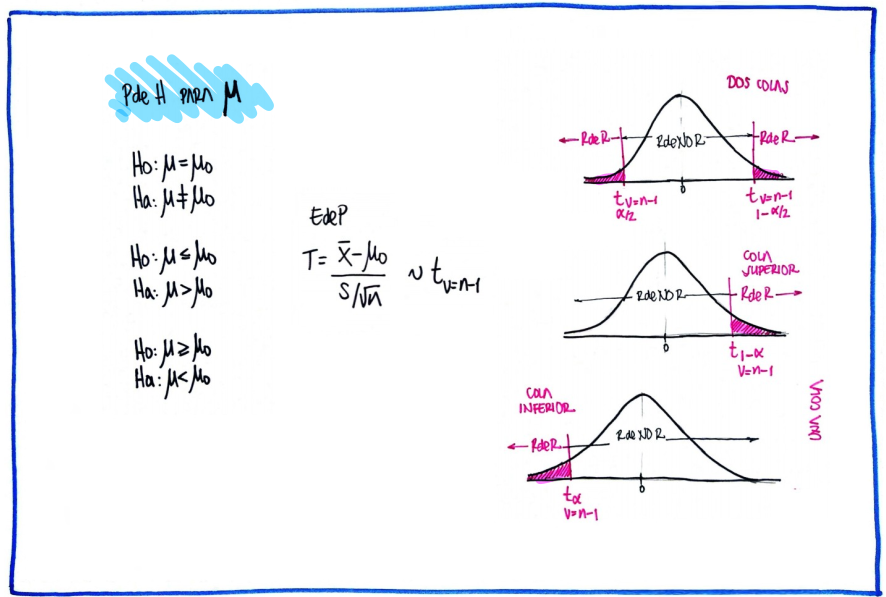 PdeH PARA μ
Ho: μ = μo
Ha: μ ≠ μo
Ho: μ ≤ μo
Ha: μ > μo
Ho: μ ≥ μo
Ha: μ < μo
EdeP
T = x̄ - μo / S/√n ~ t v=n-1
DOS COLAS
RdeR
RdeNOR
RdeR
0
t v=n-1 α/2
t v=n-1 1-α/2
COLA
SUPERIOR
RdeNOR
RdeR
0
t 1-α
v=n-1
COLA
INFERIOR
RdeR
RdeNOR
0
tα
v=n-1
UNA SOLA